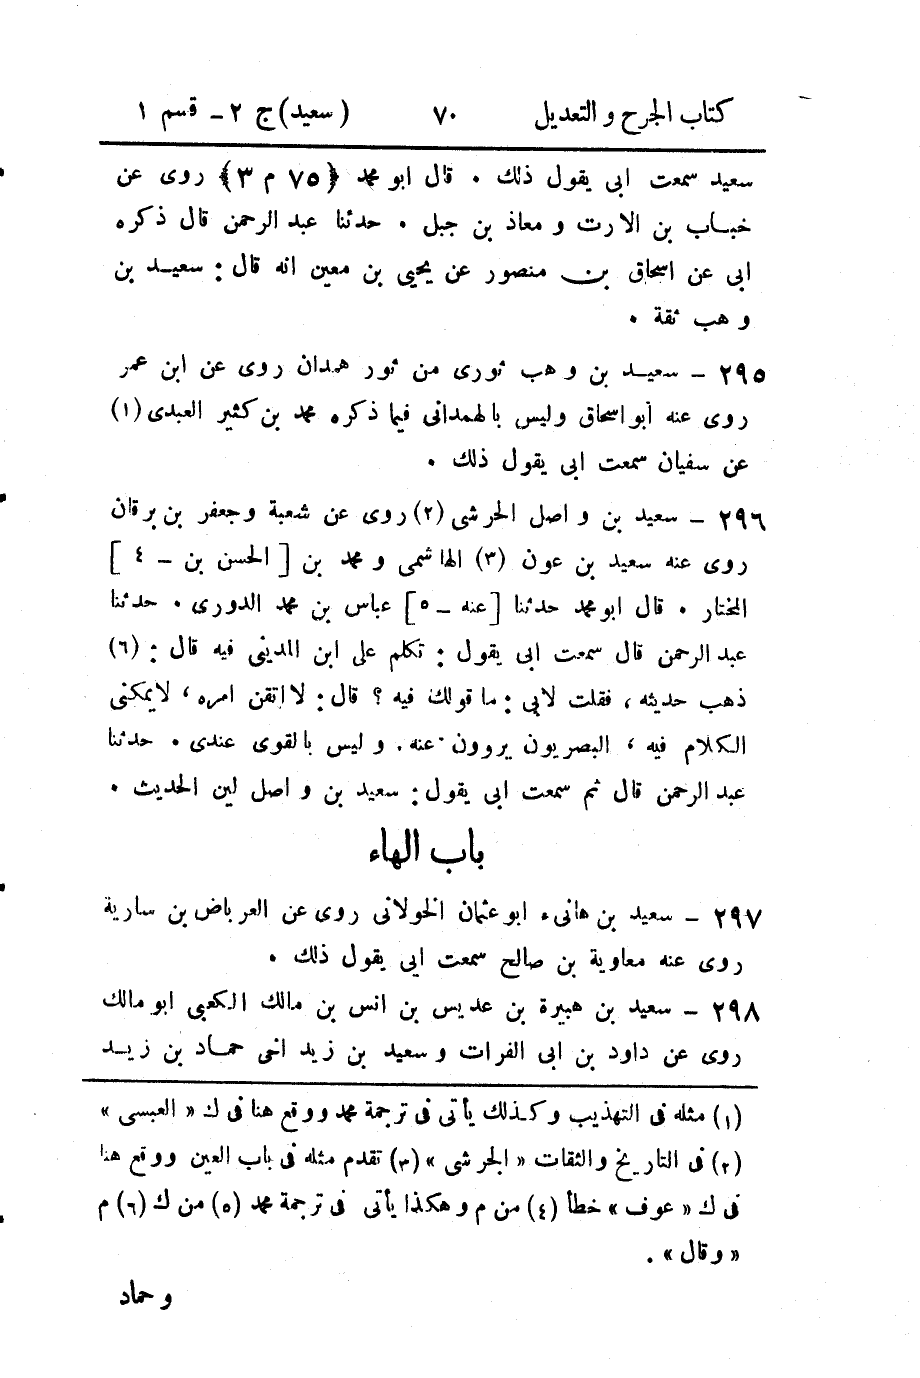 كتاب الجرح و التعديل ٧٠ (سعيد) ج ٢ ـ قسم ١
سعيد سمعت ابى يقول ذلك . قال ابو محمد ﴿٧٥ م ٣﴾ روى عن
خباب بن الارت و معاذ بن جبل . حدثنا عبد الرحمن قال ذكره
ابى عن اسحاق بن منصور عن يحيى بن معين انه قال : سعيد بن
و هب ثقة .
٢٩٥ ـ سعيد بن و هب ثورى من ثور همدان روى عن ابن عمر
روى عنه أبو اسحاق وليس بالهمدانى فيما ذكره محمد بن كثير العبدى (١)
عن سفيان سمعت ابى يقول ذلك .
٢٩٦ ـ سعيد بن و اصل الحرشى (٢) روى عن شعبة و جعفر بن برقان
روى عنه سعيد بن عون (٣) الهاشمى و محمد بن [ الحسن بن ـ ٤ ]
المختار . قال ابو محمد حدثنا [ عنه ـ ٥ ] عباس بن محمد الدورى . حدثنا
عبد الرحمن قال سمعت ابى يقول : تكلم على ابن المدينى فيه قال : (٦)
ذهب حديثه ، فقلت لابى : ما قولك فيه ؟ قال : لا اتقن امره ، لا يمكنى
الكلام فيه ، البصريون يروون عنه . و ليس بالقوى عندى . حدثنا
عبد الرحمن قال ثم سمعت ابى يقول : سعيد بن و اصل لين الحديث .
باب الهاء
٢٩٧ ـ سعيد بن هانىء ابو عثمان الخولانى روى عن العرباض بن سارية
روى عنه معاوية بن صالح سمعت ابى يقول ذلك .
٢٩٨ ـ سعيد بن هبيرة بن عديس بن انس بن مالك الكعبى ابو مالك
روى عن داود بن ابى الفرات و سعيد بن زيد اخى حماد بن زيد
(١) مثله فى التهذيب و كذلك يأتى فى ترجمة محمد ووقع هنا فى ك « العبسى »
(٢) فى التاريخ والثقات « الجرشى » (٣) تقدم مثله فى باب العين ووقع هنا
فى ك « عوف » خطأ (٤) من م و هكذا يأتى فى ترجمة محمد (٥) من ك (٦) م
« وقال » .
و حماد